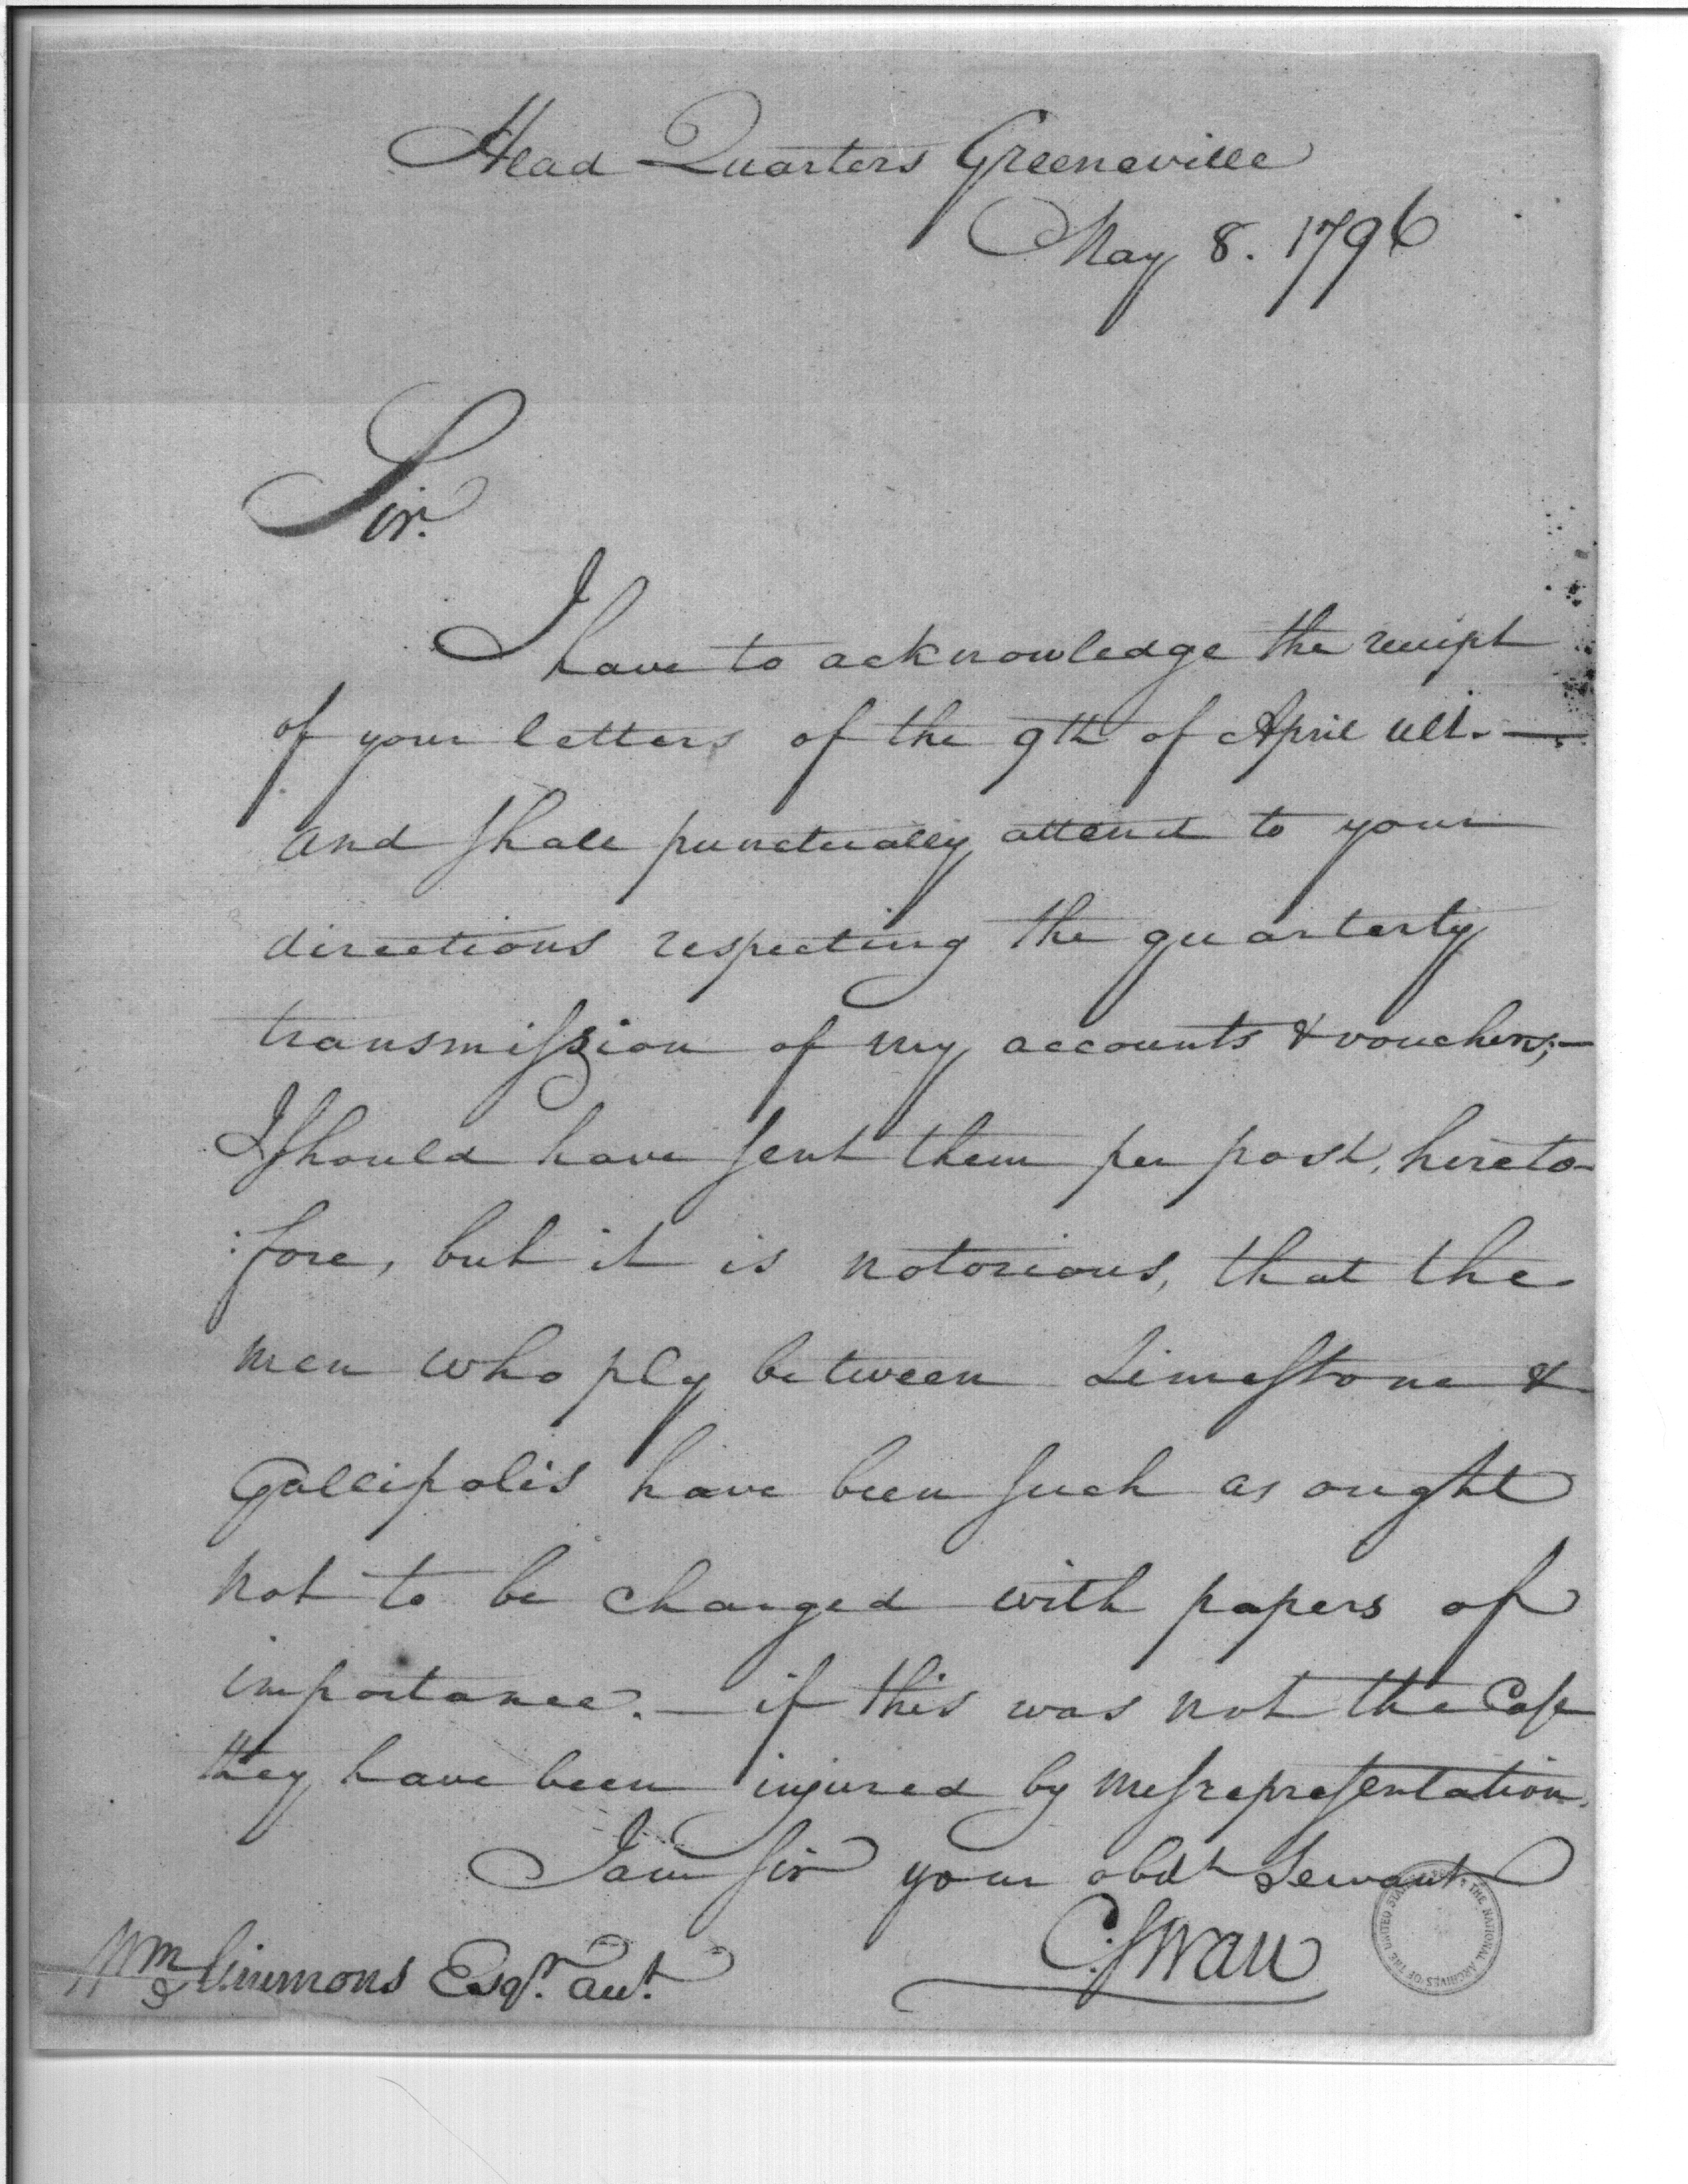 Head Quarters Greeneville
May 8. 1796
Sir.
I have to acknowledge the receipt
of your letters of the 9th of April ult. —
and shall punctually attend to your
directions respecting the quarterly
transmission of my accounts & vouchers;—
I should have sent them per post, hereto-
:fore, but it is notorious, that the
men who ply between Limestone &
Gallipolis have been such as ought
not to be charged with papers of
importance. — if this was not the Case
they have been injured by mesrepresentation.
I am sir your obdt Servant
C. Swan
Wm Simmons Esqr. act.
THE NATIONAL ARCHIVES OF THE UNITED STATES